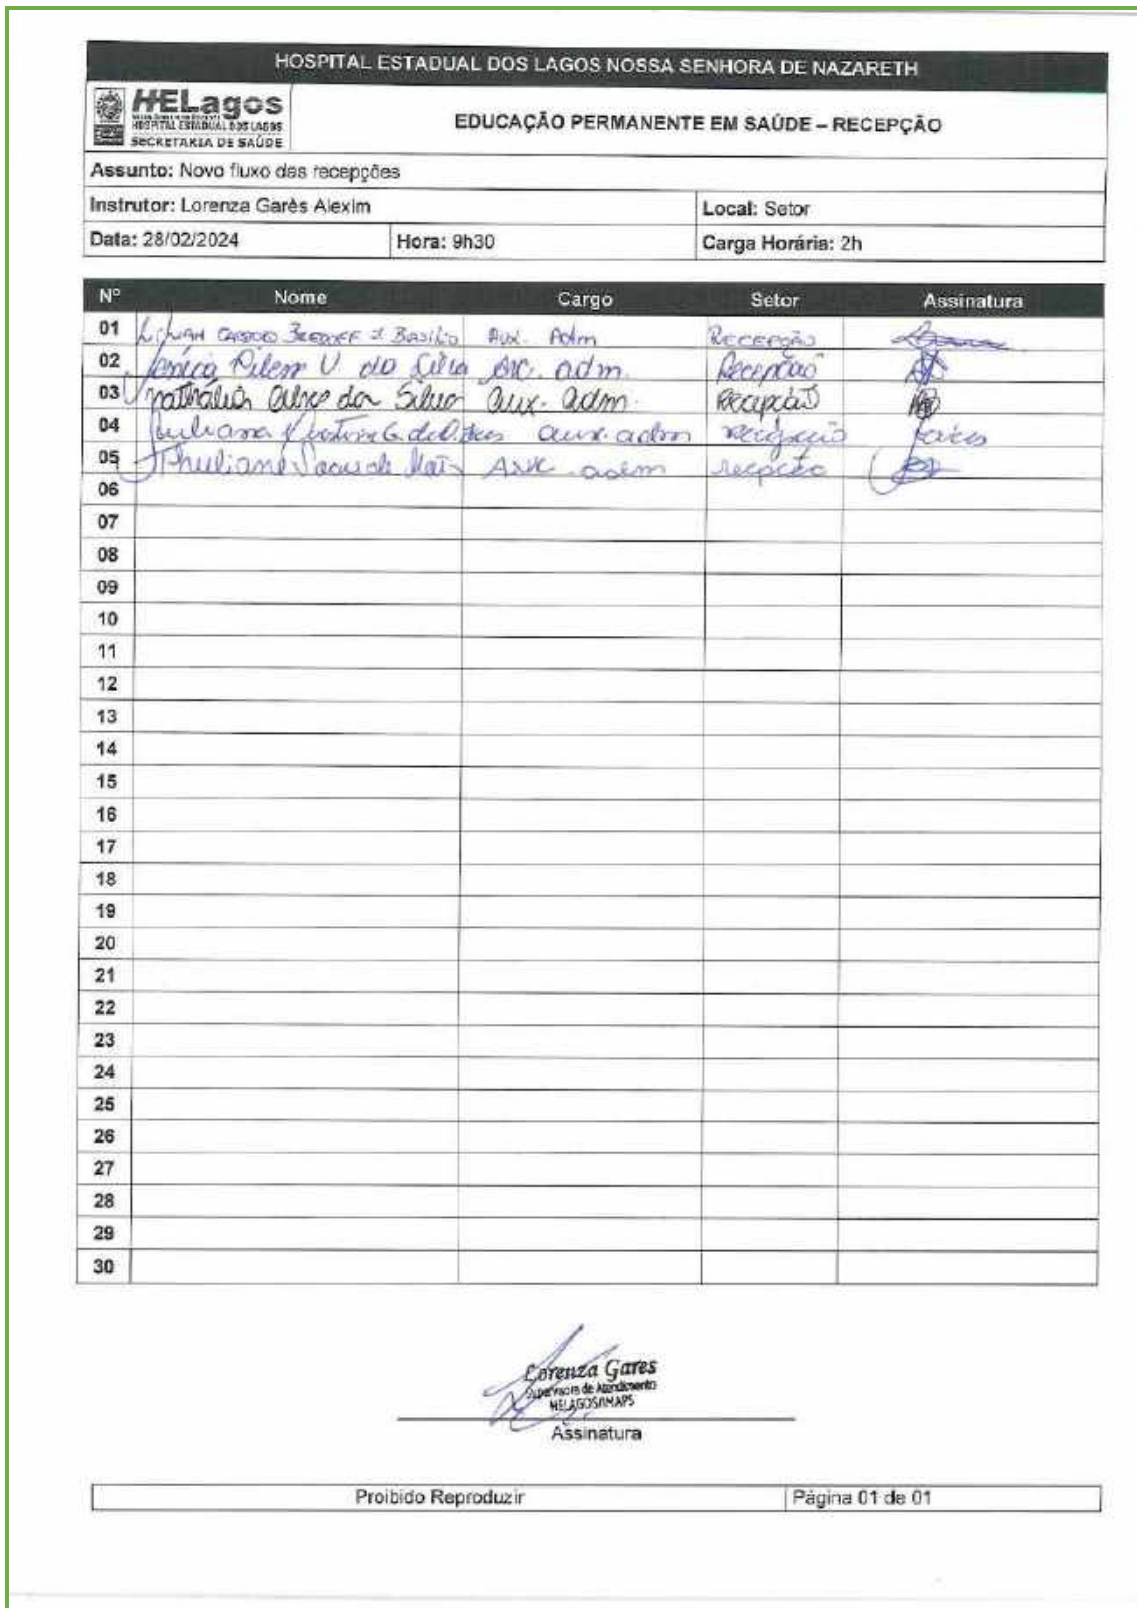 HOSPITAL ESTADUAL DOS LAGOS NOSSA SENHORA DE NAZARETH
HELagos
HOSPITAL ESTADUAL DOS LAGOS
SECRETARIA DE SAÚDE
EDUCAÇÃO PERMANENTE EM SAÚDE – RECEPÇÃO
Assunto: Novo fluxo das recepções
Instrutor: Lorenza Garês Alexim Local: Setor
Data: 28/02/2024 Hora: 9h30 Carga Horária: 2h
Nº Nome Cargo Setor Assinatura
01 Aux. Adm RECEPÇÃO
02 U. da Silva adm. Recepção
03 Nathália da Silva aux. adm. Recepção
04 Juliana aux. adm recepção
05 Thuliane adm recepção
06
07
08
09
10
11
12
13
14
15
16
17
18
19
20
21
22
23
24
25
26
27
28
29
30
Lorenza Gares
Supervisora de Atendimento
HELAGOS/IMAPS
Assinatura
Proibido Reproduzir Página 01 de 01